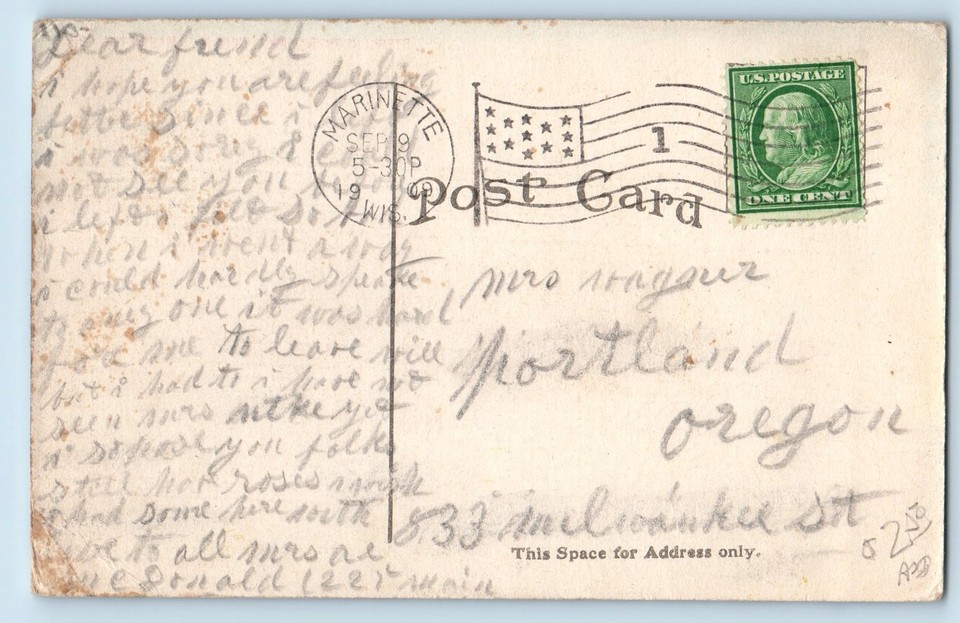 Dear friend
i hope you are feeling
since i
i was sorry I
not see you to day
i left felt so
when i went a way
i could hardly speake
to eney one it was hard
fore me to leave will
but i had to i have not
seen mrs yet
i sopose you folks
still hav roses i wish
i had some here with
love to all mrs ae
mc Donald 1221 main
MARINETTE
SEP 9
5-30P
1909
WIS.
1
U.S. POSTAGE
ONE CENT
Post Card
mrs wagner
portland
oregon
833 milwaukee St
This Space for Address only.